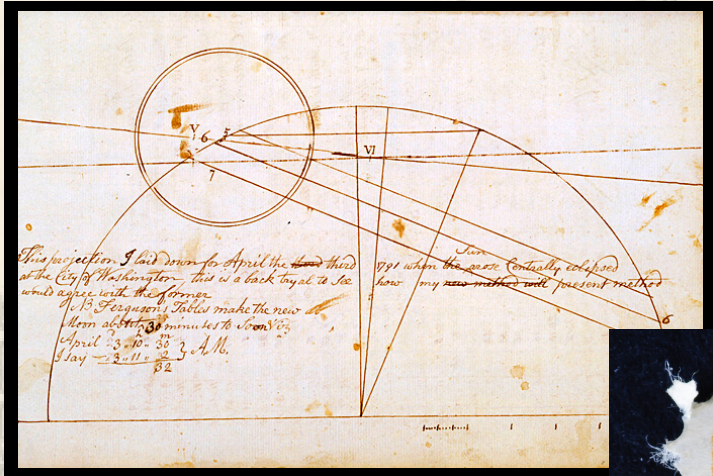 V
6
5
VI
7
This projection I laid down for April the third third 1791 when the Sun arose Centrally eclipsed
at the City of Washington, this is a back tryal to see how my new method will present method
would agree with the former
NB Ferguson's Tables make the new
Moon about 30 minutes to soon Viz
April 3 . 10 . 30
I say 3 . 11 . 2 } A.M.
32
6